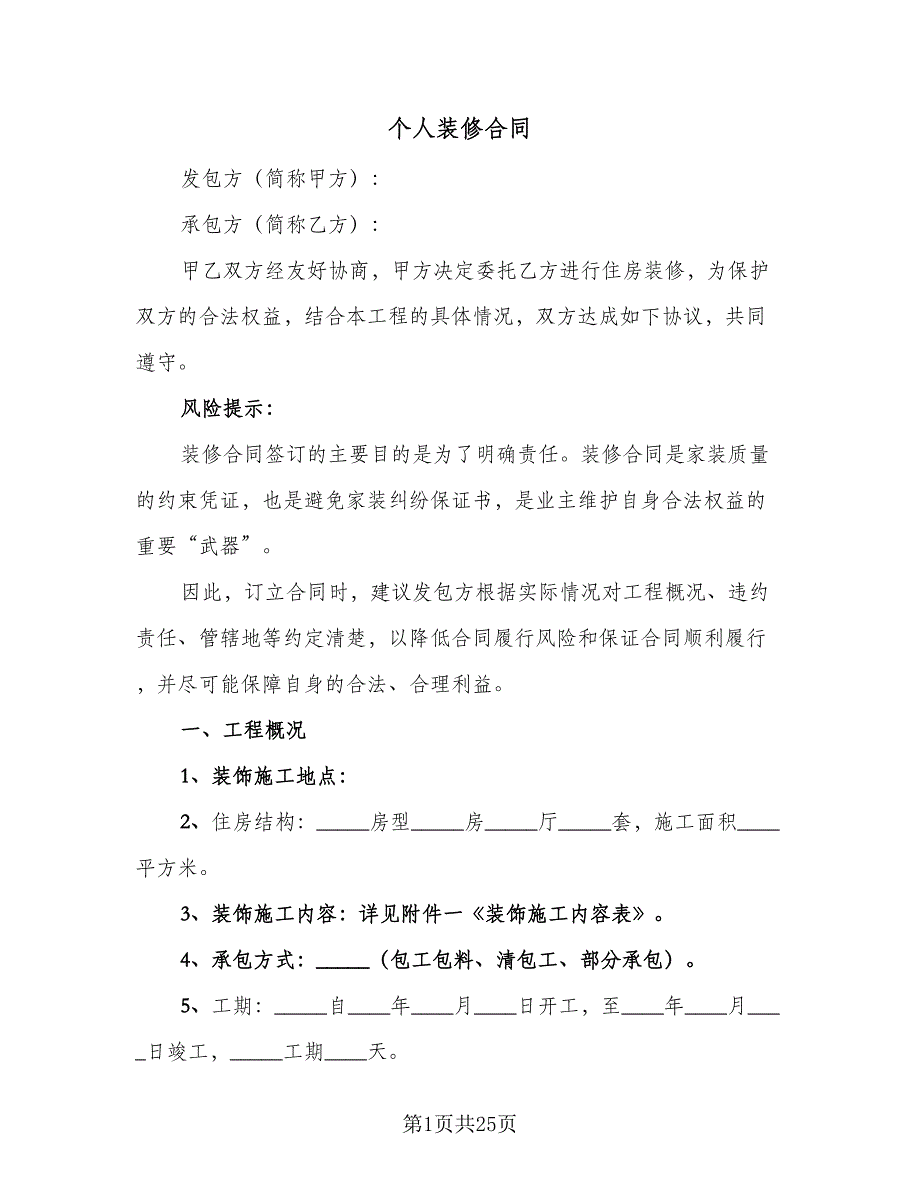 个人装修合同
发包方（简称甲方）：
承包方（简称乙方）：
甲乙双方经友好协商，甲方决定委托乙方进行住房装修，为保护
双方的合法权益，结合本工程的具体情况，双方达成如下协议，共同
遵守。
风险提示：
装修合同签订的主要目的是为了明确责任。装修合同是家装质量
的约束凭证，也是避免家装纠纷保证书，是业主维护自身合法权益的
重要“武器”。
因此，订立合同时，建议发包方根据实际情况对工程概况、违约
责任、管辖地等约定清楚，以降低合同履行风险和保证合同顺利履行
，并尽可能保障自身的合法、合理利益。
一、工程概况
1、装饰施工地点：
2、住房结构：_____房型_____房_____厅_____套，施工面积____
平方米。
3、装饰施工内容：详见附件一《装饰施工内容表》。
4、承包方式：_____（包工包料、清包工、部分承包）。
5、工期：_____自____年____月____日开工，至____年____月___
_日竣工，_____工期____天。
第1页共25页